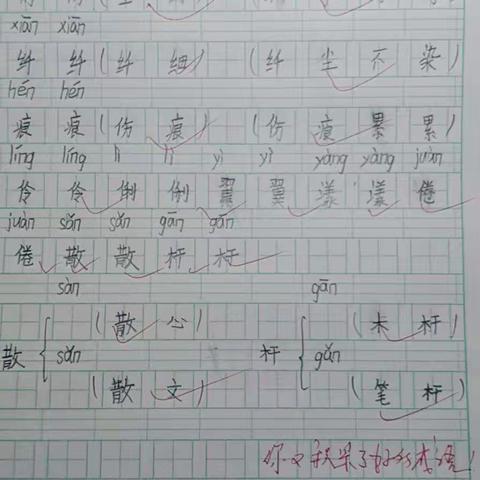 xiān xiān
纤 纤 (纤 细) (纤 尘 不 染)
hén hén
痕 痕 (伤 痕) (伤 痕 累 累)
líng líng lì lì yì yì yàng yàng juàn
伶 伶 俐 俐 翼 翼 漾 漾 倦
juàn sǎn sǎn gān gān
倦 散 散 杆 杆
sàn gān
(散 心) (木 杆)
散 { sǎn 杆 { gǎn
(散 文) (笔 杆)
你又积累了好多成语!